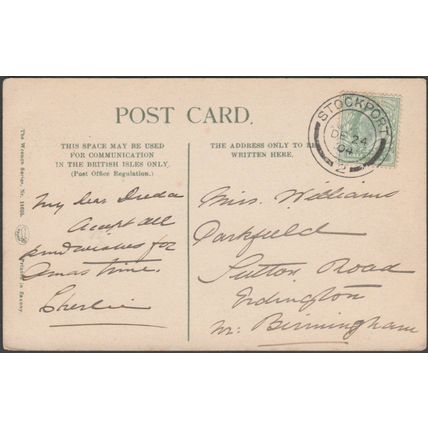 POST CARD.
THIS SPACE MAY BE USED
FOR COMMUNICATION
IN THE BRITISH ISLES ONLY.
(Post Office Regulation.)
THE ADDRESS ONLY TO BE
WRITTEN HERE.
STOCKPORT
DE 24
04
2
My dear
Accept all
good wishes for
Xmas time.
Miss. Williams
Parkfield
Sutton Road
Erdington
Nr. Birmingham
The Wrench Series, No.
Printed in Saxony